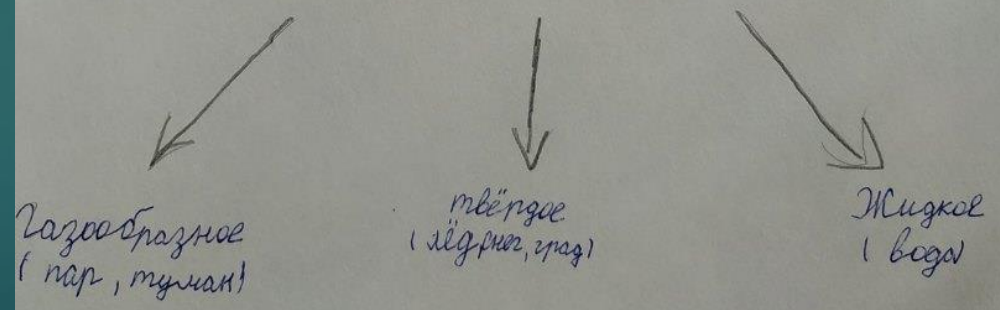 Газообразное
(пар, туман)
твёрдое
(лёд, снег, град)
Жидкое
(вода)